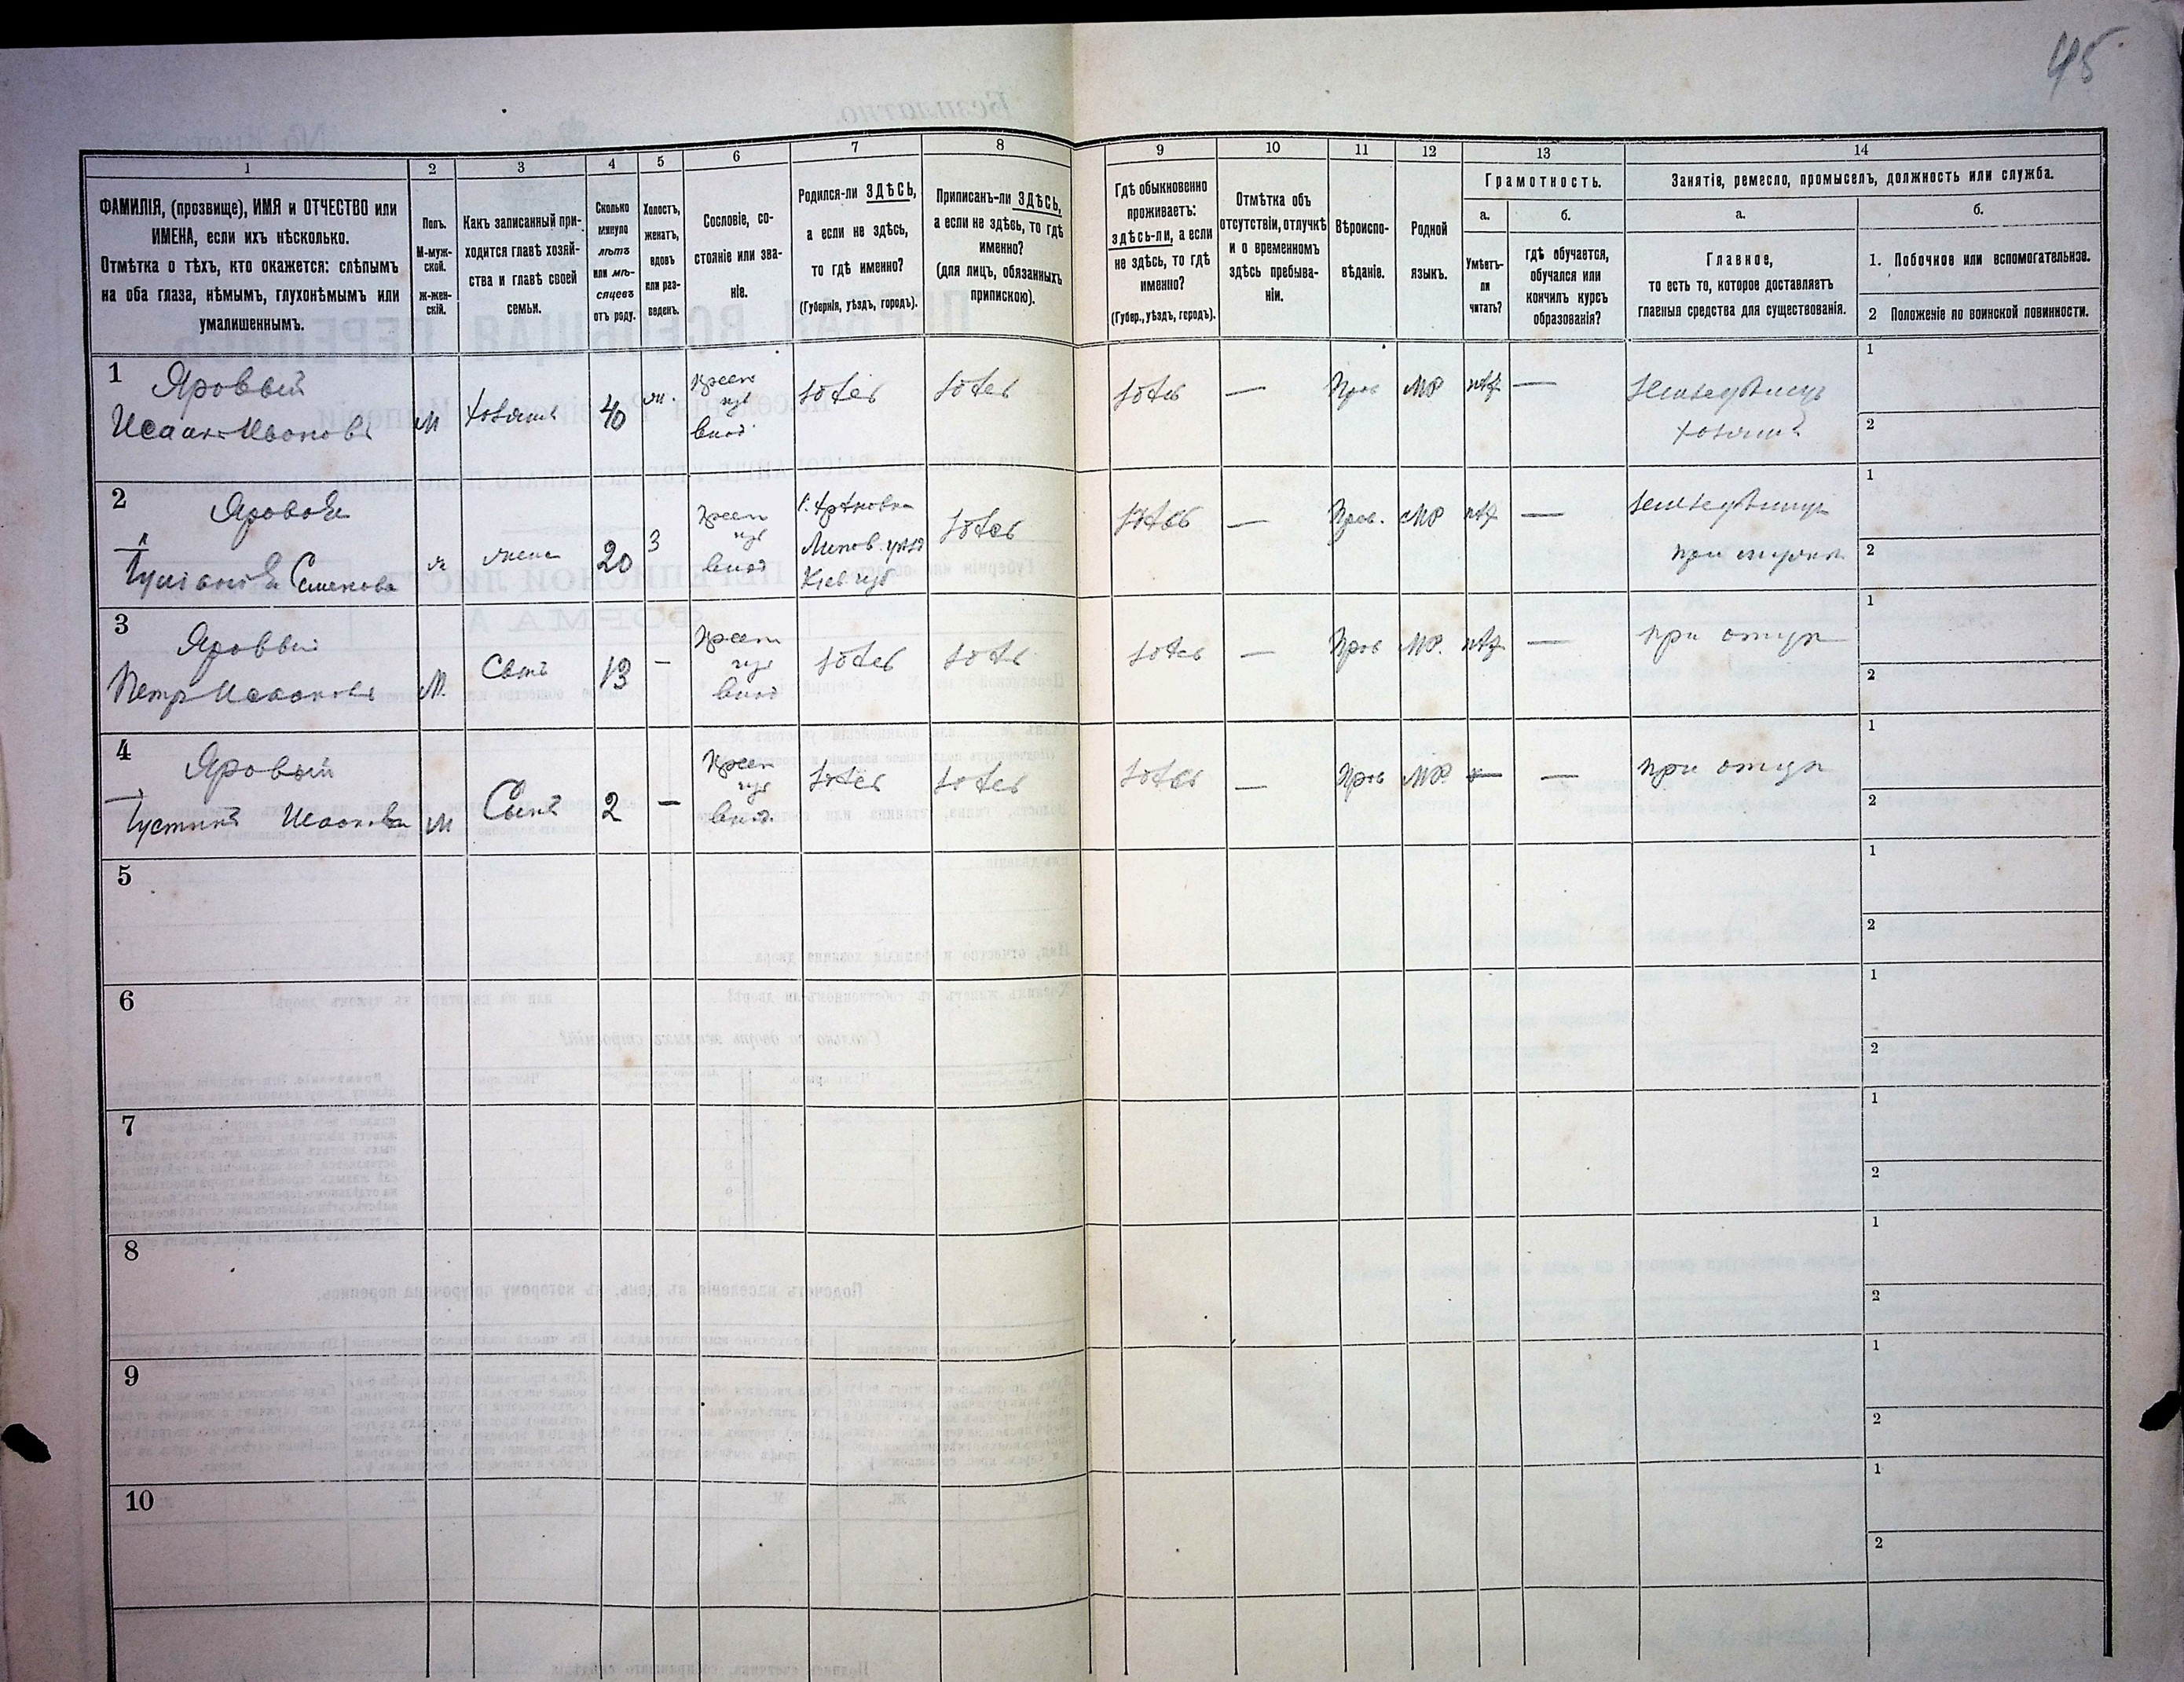 45
1
2
3
4
5
6
7
8
9
10
11
12
13
14
ФАМИЛІЯ, (прозвище), ИМЯ и ОТЧЕСТВО или
ИМЕНА, если ихъ нѣсколько.
Отмѣтка о тѣхъ, кто окажется: слѣпымъ
на оба глаза, нѣмымъ, глухонѣмымъ или
умалишеннымъ.
Полъ.
М-муж-
ской.
Ж-жен-
скій.
Какъ записанный при-
ходится главѣ хозяй-
ства и главѣ своей
семьи.
Сколько
минуло
лѣтъ
или мѣ-
сяцевъ
отъ роду.
Холостъ,
женатъ,
вдовъ
или раз-
веденъ.
Сословіе, со-
стояніе или зва-
ніе.
Родился-ли ЗДѢСЬ,
а если не здѣсь,
то гдѣ именно?
(Губернія, уѣздъ, городъ).
Приписанъ-ли ЗДѢСЬ,
а если не здѣсь, то гдѣ
именно?
(для лицъ, обязанныхъ
припискою).
Гдѣ обыкновенно
проживаетъ:
здѣсь-ли, а если
не здѣсь, то гдѣ
именно?
(Губер., уѣздъ, городъ).
Отмѣтка объ
отсутствіи, отлучкѣ
и о временномъ
здѣсь пребыва-
ніи.
Вѣроиспо-
вѣданіе.
Родной
языкъ.
Грамотность.
а.
б.
Умѣетъ-
ли
читать?
гдѣ обучается,
обучался или
кончилъ курсъ
образованія?
Занятія, ремесло, промыселъ, должность или служба.
а.
б.
Главное,
то есть то, которое доставляетъ
главныя средства для существованія.
1. Побочное или вспомогательное.
2 Положеніе по воинской повинности.
1
Яровый
Исаакъ Ивановъ
М
хозяинъ
40
ж.
крест
изъ
влад
здѣсь
здѣсь
здѣсь
—
Прав
МР
нѣт
—
Земледѣлецъ
хозяинъ
1
2
2
Яровая
Семенова
ж
жена
20
З
крест
изъ
влад
Липов. уѣзд
Кіев губ
здѣсь
здѣсь
—
Прав.
МР
нѣт
—
земледѣлецъ
при мужѣ
1
2
3
Яровый
Петръ Исааковъ
М.
Сынъ
13
—
крест
изъ
влад
здѣсь
здѣсь
здѣсь
—
Прав
МР.
нѣт
—
при отцѣ
1
2
4
Яровый
Густинъ Исааковъ
М
Сынъ
2
—
Крест
изъ
влад.
здѣсь
здѣсь
здѣсь
—
Прав
МР.
—
—
при отцѣ
1
2
5
1
2
6
1
2
7
1
2
8
1
2
9
1
2
10
1
2